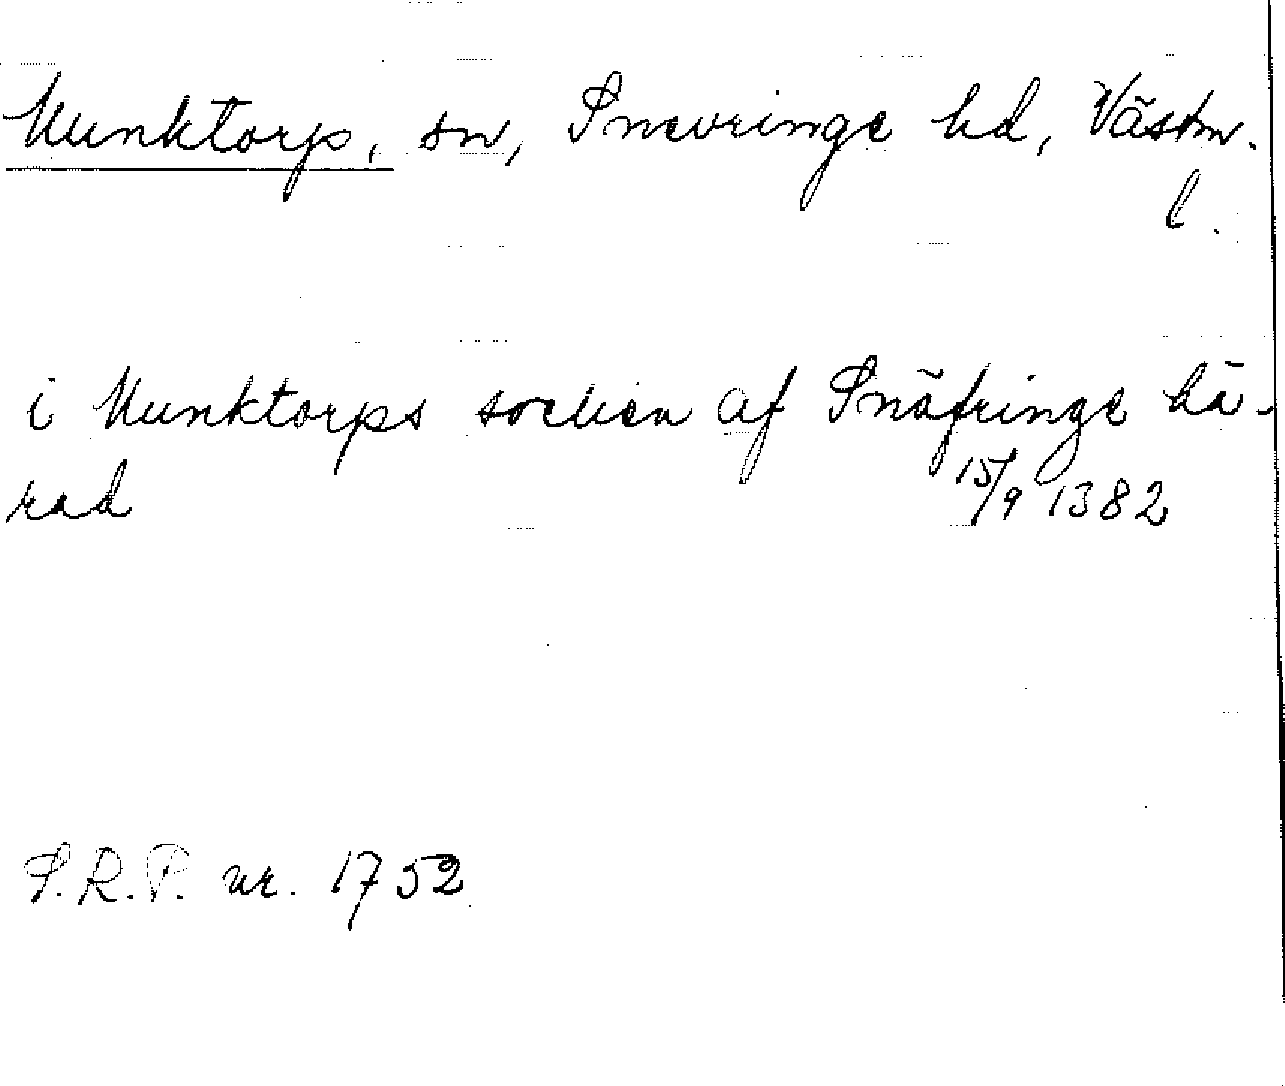 Munktorp, sn, Snevringe hd, Västm.
l.
i Munktorps socken af Snäfringe hä-
rad 15/9 1382
S.R.P. nr. 1752